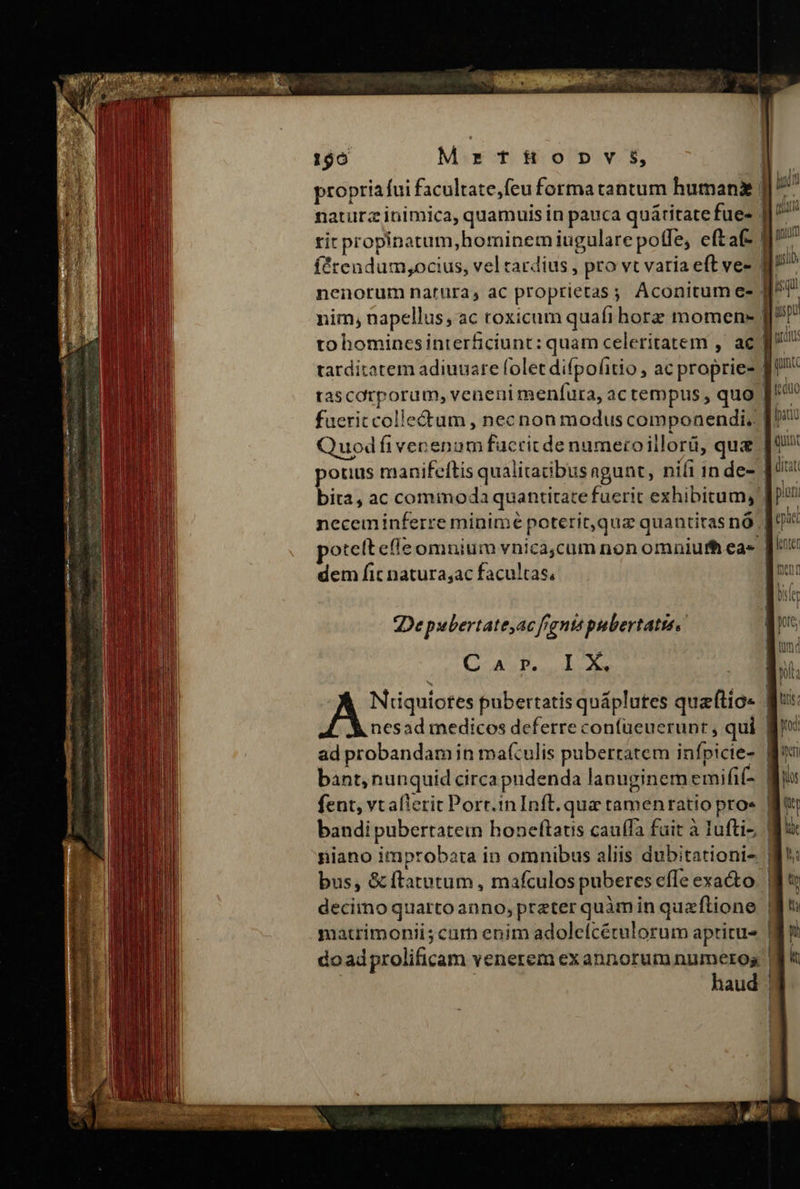 190 METHODVS,
propria ſui facultate, ſeu forma tantum humanæ
naturæ inimica, quamuis in pauca quãtitate fue-
rit propinatum, hominem iugulare poſſe, eſt aſ-
ſerendum, ocius, vel tardius, pro vt varia eſt ve-
nenorum natura, ac proprietas; Aconitum e-
nim, napellus, ac toxicum quaſi horæ momen-
to homines interficiunt: quam celeritatem, ac
tarditatem adiuuare ſolet diſpoſitio, ac proprie-
tas corporum, veneni menſura, ac tempus, quo
fuerit collectum, necnon modus componendi.
Quod ſi venenum fuerit de numero illorũ, quæ
potius manifeſtis qualitatibus agunt, niſi in de-
bita, ac commoda quantitate fuerit exhibitum,
necem inferre minimè poterit, quæ quantitas nõ
poteſt eſſe omnium vnica, cum non omnium ea-
dem ſit natura, ac facultas.
De pubertate, ac ſignis pubertatis.
CAP. IX.
ANtiquiores pubertatis quãplures quæſtio-
nes ad medicos deferre conſueuerunt, qui
ad probandam in maſculis pubertatem inſpicie-
bant, nunquid circa pudenda lanuginem emiſiſ-
ſent, vt aſſerit Porr. in Inſt. quæ tamen ratio pro-
bandi pubertatem honeſtatis cauſſa fuit à Iuſti-
niano improbata in omnibus aliis dubitationi-
bus, & ſtatutum, maſculos puberes eſſe exacto
decimo quarto anno, præter quàm in quæſtione
matrimonii; cum enim adoleſcẽtulorum aptitu-
do ad prolificam venerem ex annorum numero,
haud